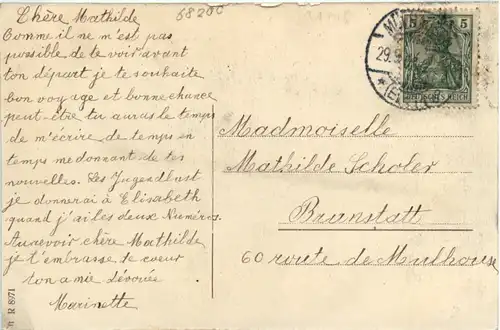 Chère Mathilde
Comme il ne m'est pas
possible de te voir avant
ton départ je te souhaite
bon voyage et bonne chance
peut être tu auras le temps
de m'écrire de temps en
temps me donnant de tes
nouvelles. Les Jugendlust
je donnerai à Elisabeth
quand j'ai les deux Numéros.
Aurevoir chère Mathilde
je t'embrasse de coeur
ton amie dévouée
Marinette
R 8971
58200
5 5
29.9.
REICH
Madmoiselle
Mathilde Scholer
Brunstatt
60 route de Mulhouse